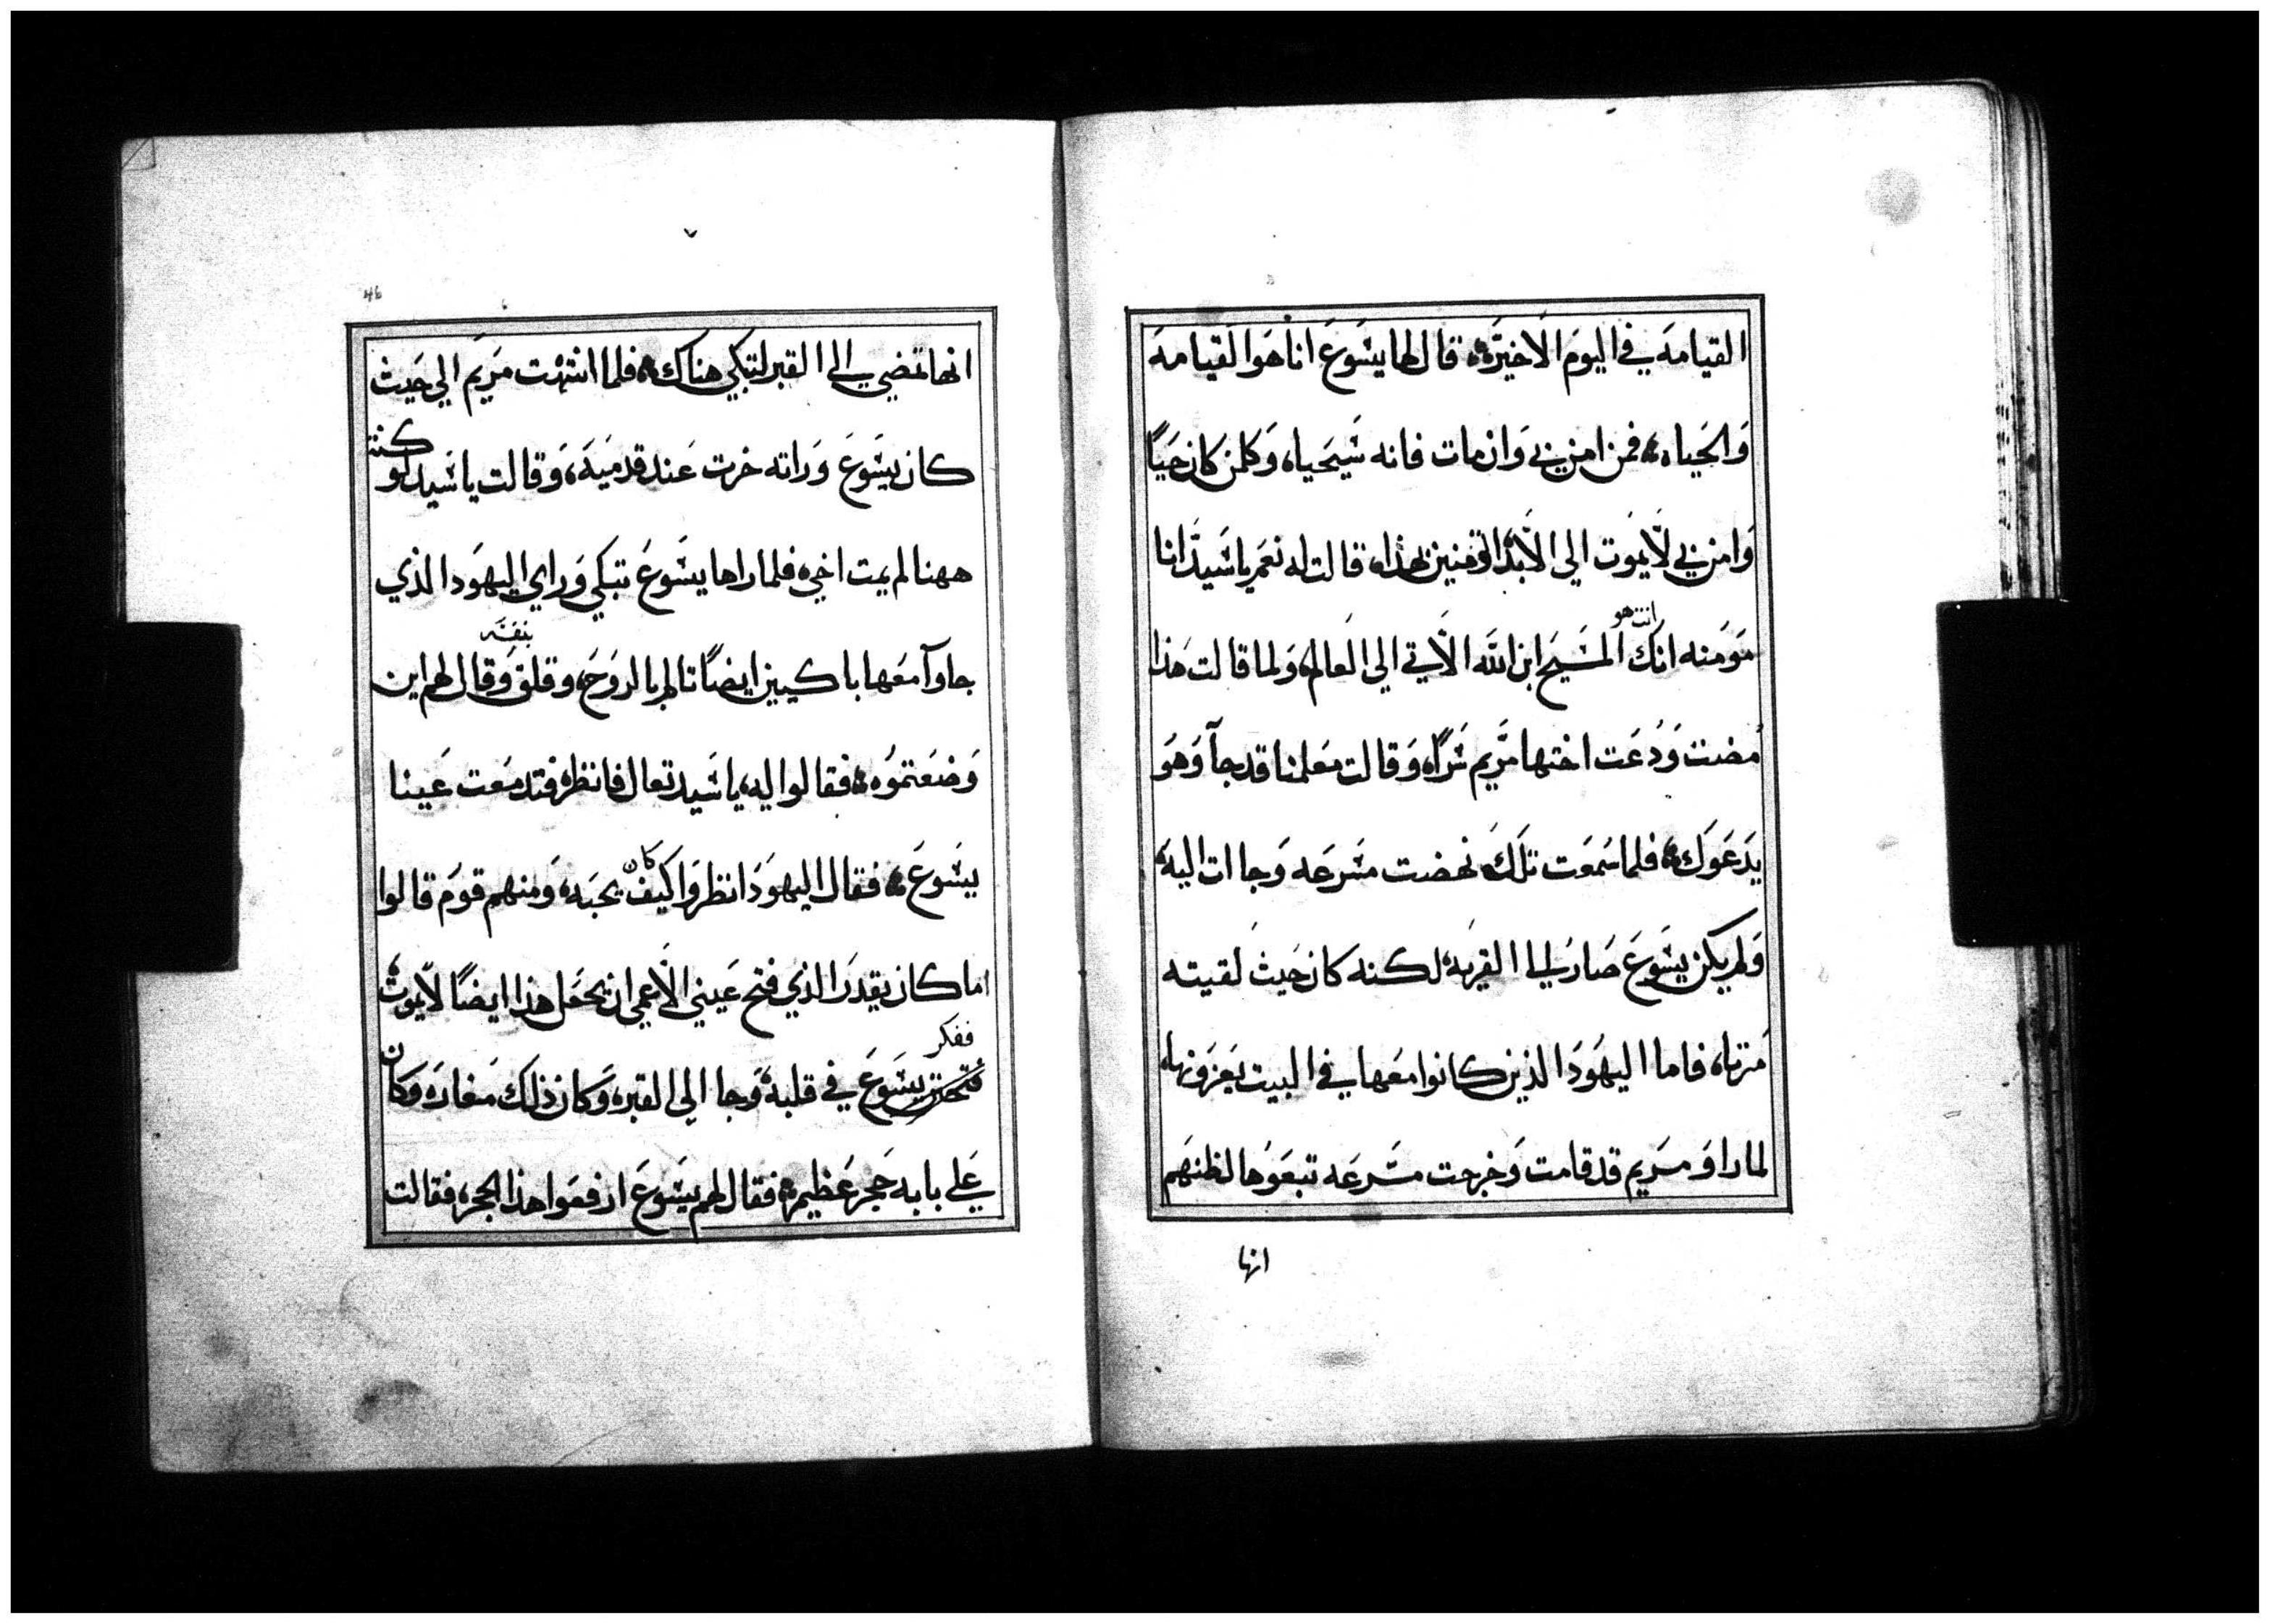 القيامه في اليوم الاخيره قال لها يشوع انا هوا القيامه
والحياه فمن امن بي وان مات فانه سيحياه وكلمن كان حيا
وامن بي لا يموت الي الابد اتومنين بهذا قالت له نعم يا سيد انا
انت هو
مومنه انك المسيح ابن الله الاتي الي العالم ولما قالت هذا
مضت ودعت اختها مريم سرا وقالت معلمنا قد جآ وهو
يدعوك فلما سمعت تلك نهضت مسرعه وجاات اليه
ولم يكن يسوع صار الي القريه لكنه كان حيث لقيته
مرتا فاما اليهود الذين كانوا معها في البيت يعزونها
لما راو مريم قد قامت وخرجت مسرعه تبعوها لظنهم
انها
46
انها تمضي الي القبر لتبكي هناك فلما انتهت مريم الي حيث
كان يسوع وراته خرت عند قدميه وقالت يا سيد لو كنت
ههنا لم يمت اخي فلما راها يسوع تبكي وراي اليهود الذي
بنفسه
جاوآ معها باكيين ايضا تالم بالروح وقلق وقال لهم اين
وضعتموه فقالوا له يا سيد تعال فانظر فتدمعت عينا
يسوع فقال اليهود انظروا كيف كان يحبه ومنهم قوم قالوا
اما كان يقدر الذي فتح عيني الاعمي ان يجعل هذا ايضا لا يموت
ففكر
يسوع في قلبه وجا الي القبر وكان ذلك مغاره وكان
علي بابه حجر عظيم فقال لهم يسوع ارفعوا هذا الحجر فقالت